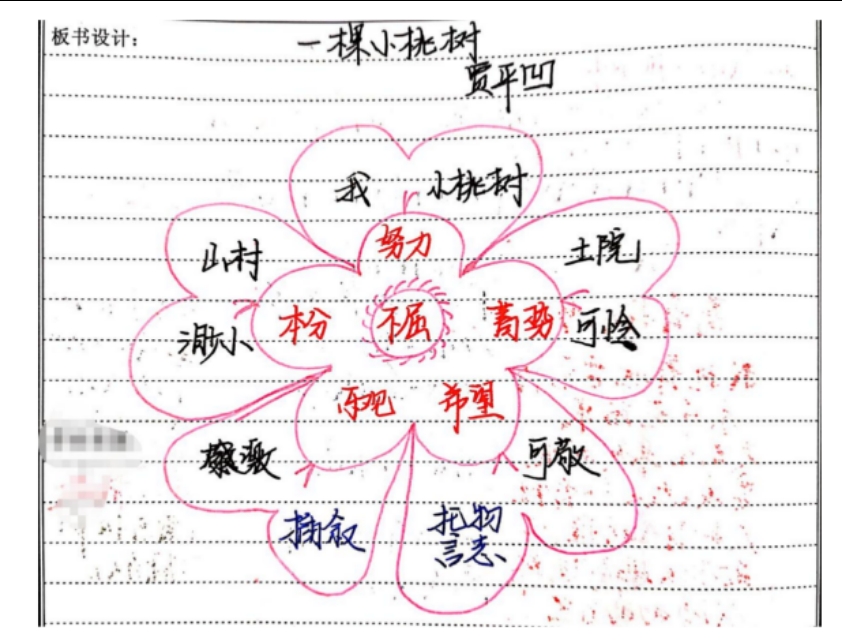 板书设计：
一棵小桃树
贾平凹
我 小桃树
努力
山村 土院
渺小 本分 不屈 蓄势 可怜
乐观 希望
感激 可敬
插叙 托物
言志